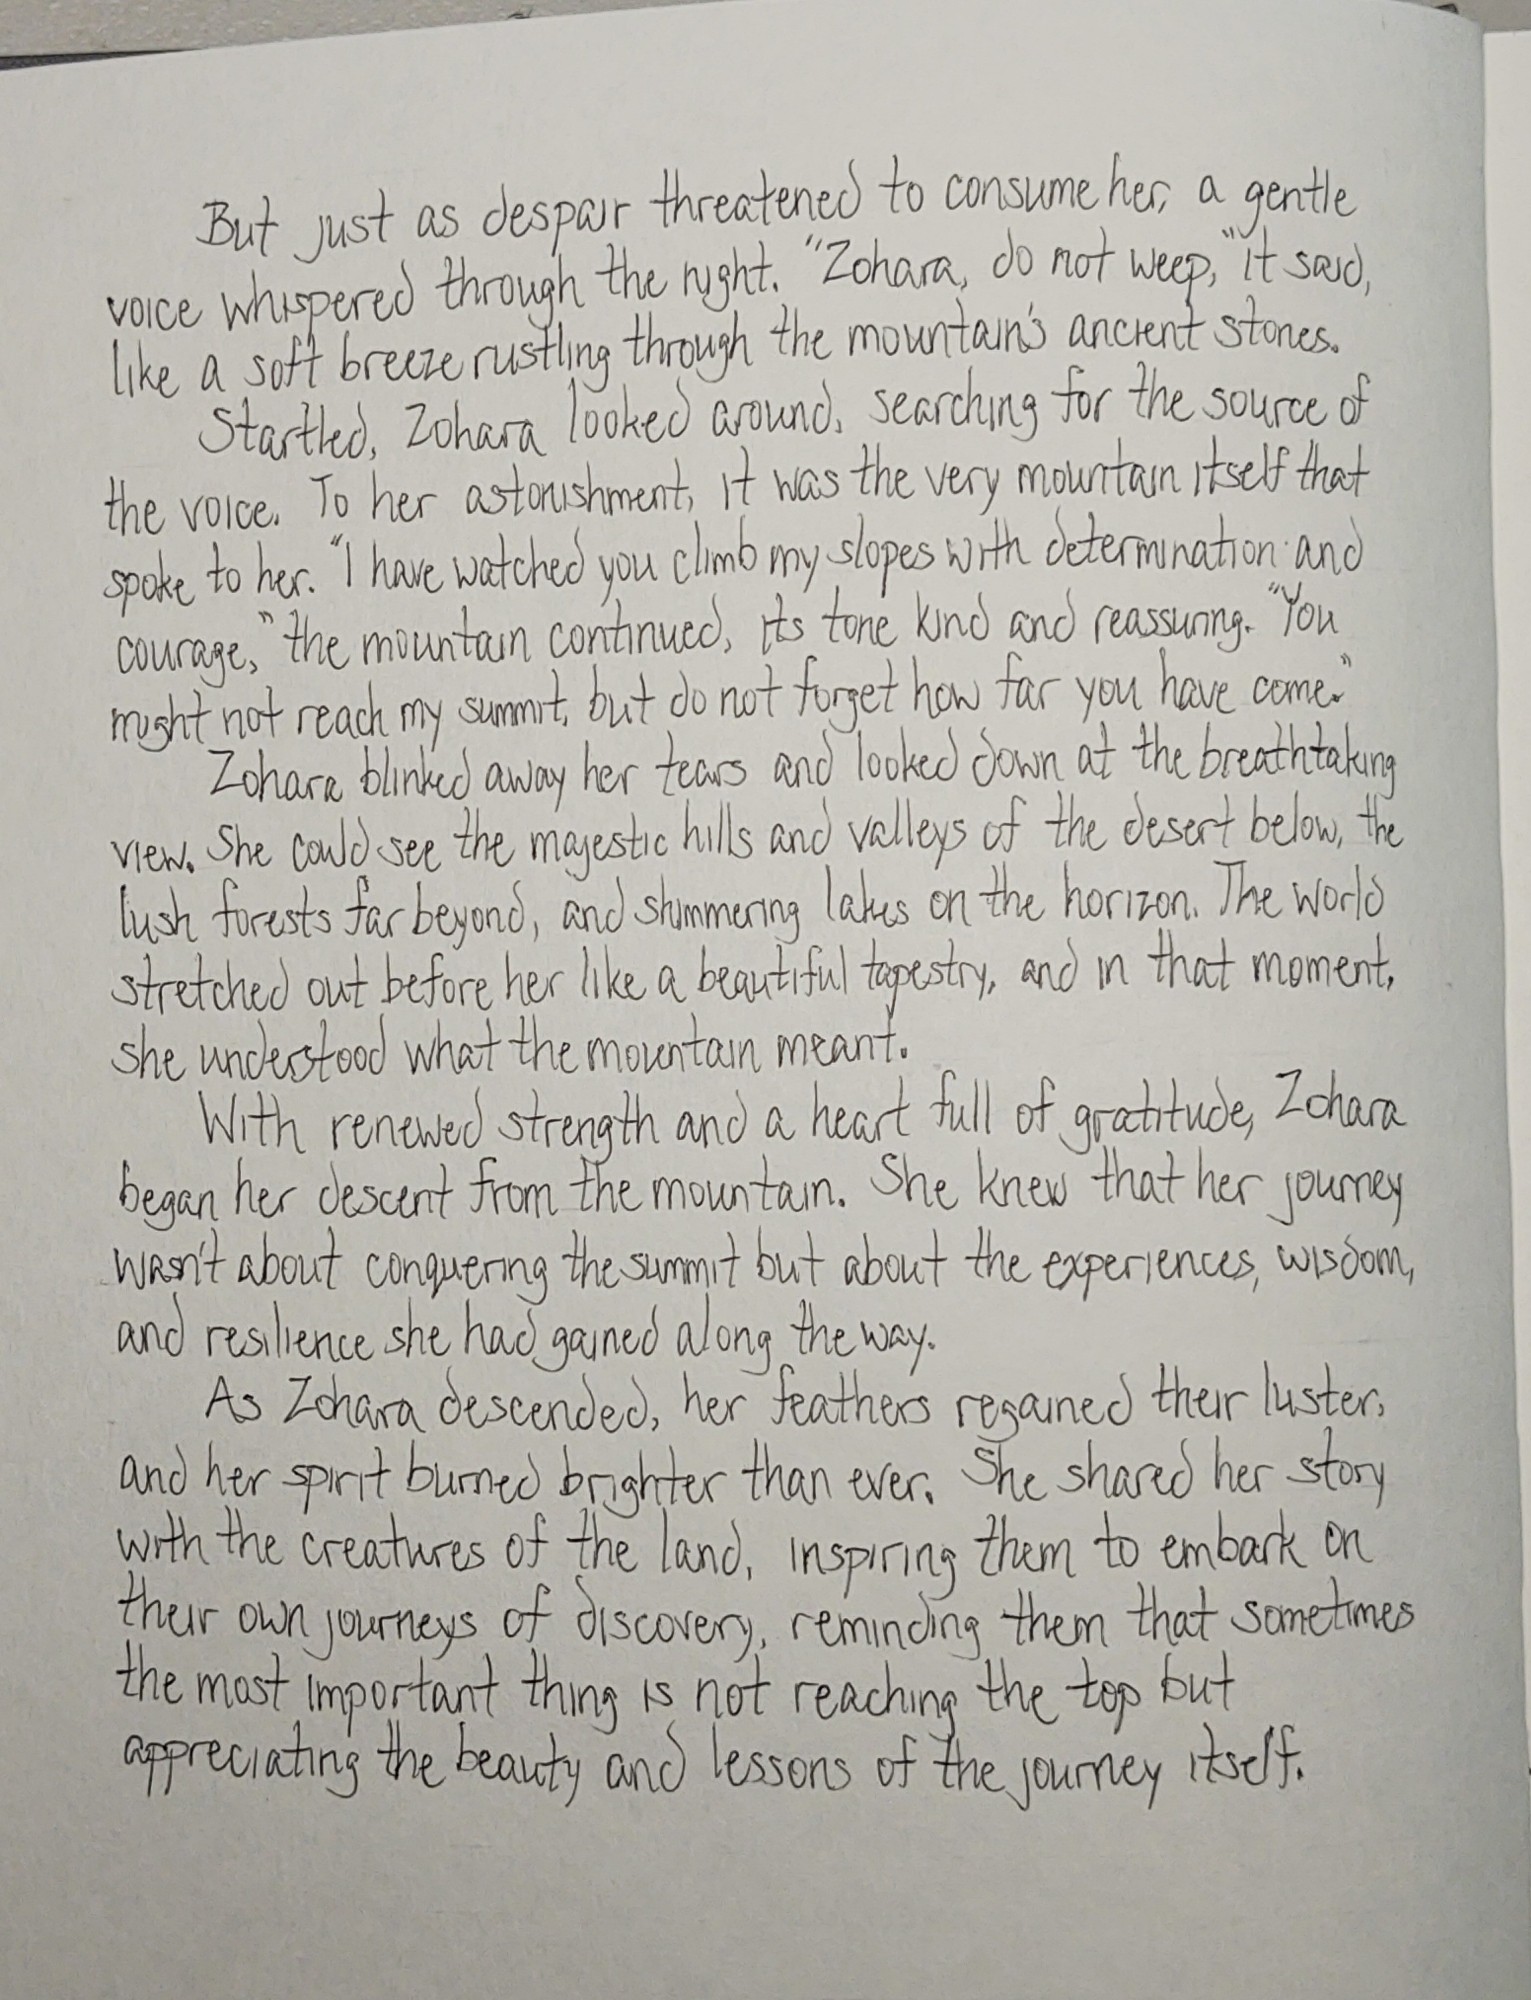 But just as despair threatened to consume her, a gentle
voice whispered through the night. "Zohara, do not weep," it said,
like a soft breeze rustling through the mountain's ancient stones.
Startled, Zohara looked around, searching for the source of
the voice. To her astonishment, it was the very mountain itself that
spoke to her. "I have watched you climb my slopes with determination and
courage," the mountain continued, its tone kind and reassuring. "You
might not reach my summit, but do not forget how far you have come."
Zohara blinked away her tears and looked down at the breathtaking
view. She could see the majestic hills and valleys of the desert below, the
lush forests far beyond, and shimmering lakes on the horizon. The world
stretched out before her like a beautiful tapestry, and in that moment,
she understood what the mountain meant.
With renewed strength and a heart full of gratitude, Zohara
began her descent from the mountain. She knew that her journey
wasn't about conquering the summit but about the experiences, wisdom,
and resilience she had gained along the way.
As Zohara descended, her feathers regained their luster,
and her spirit burned brighter than ever. She shared her story
with the creatures of the land, inspiring them to embark on
their own journeys of discovery, reminding them that sometimes
the most important thing is not reaching the top but
appreciating the beauty and lessons of the journey itself.